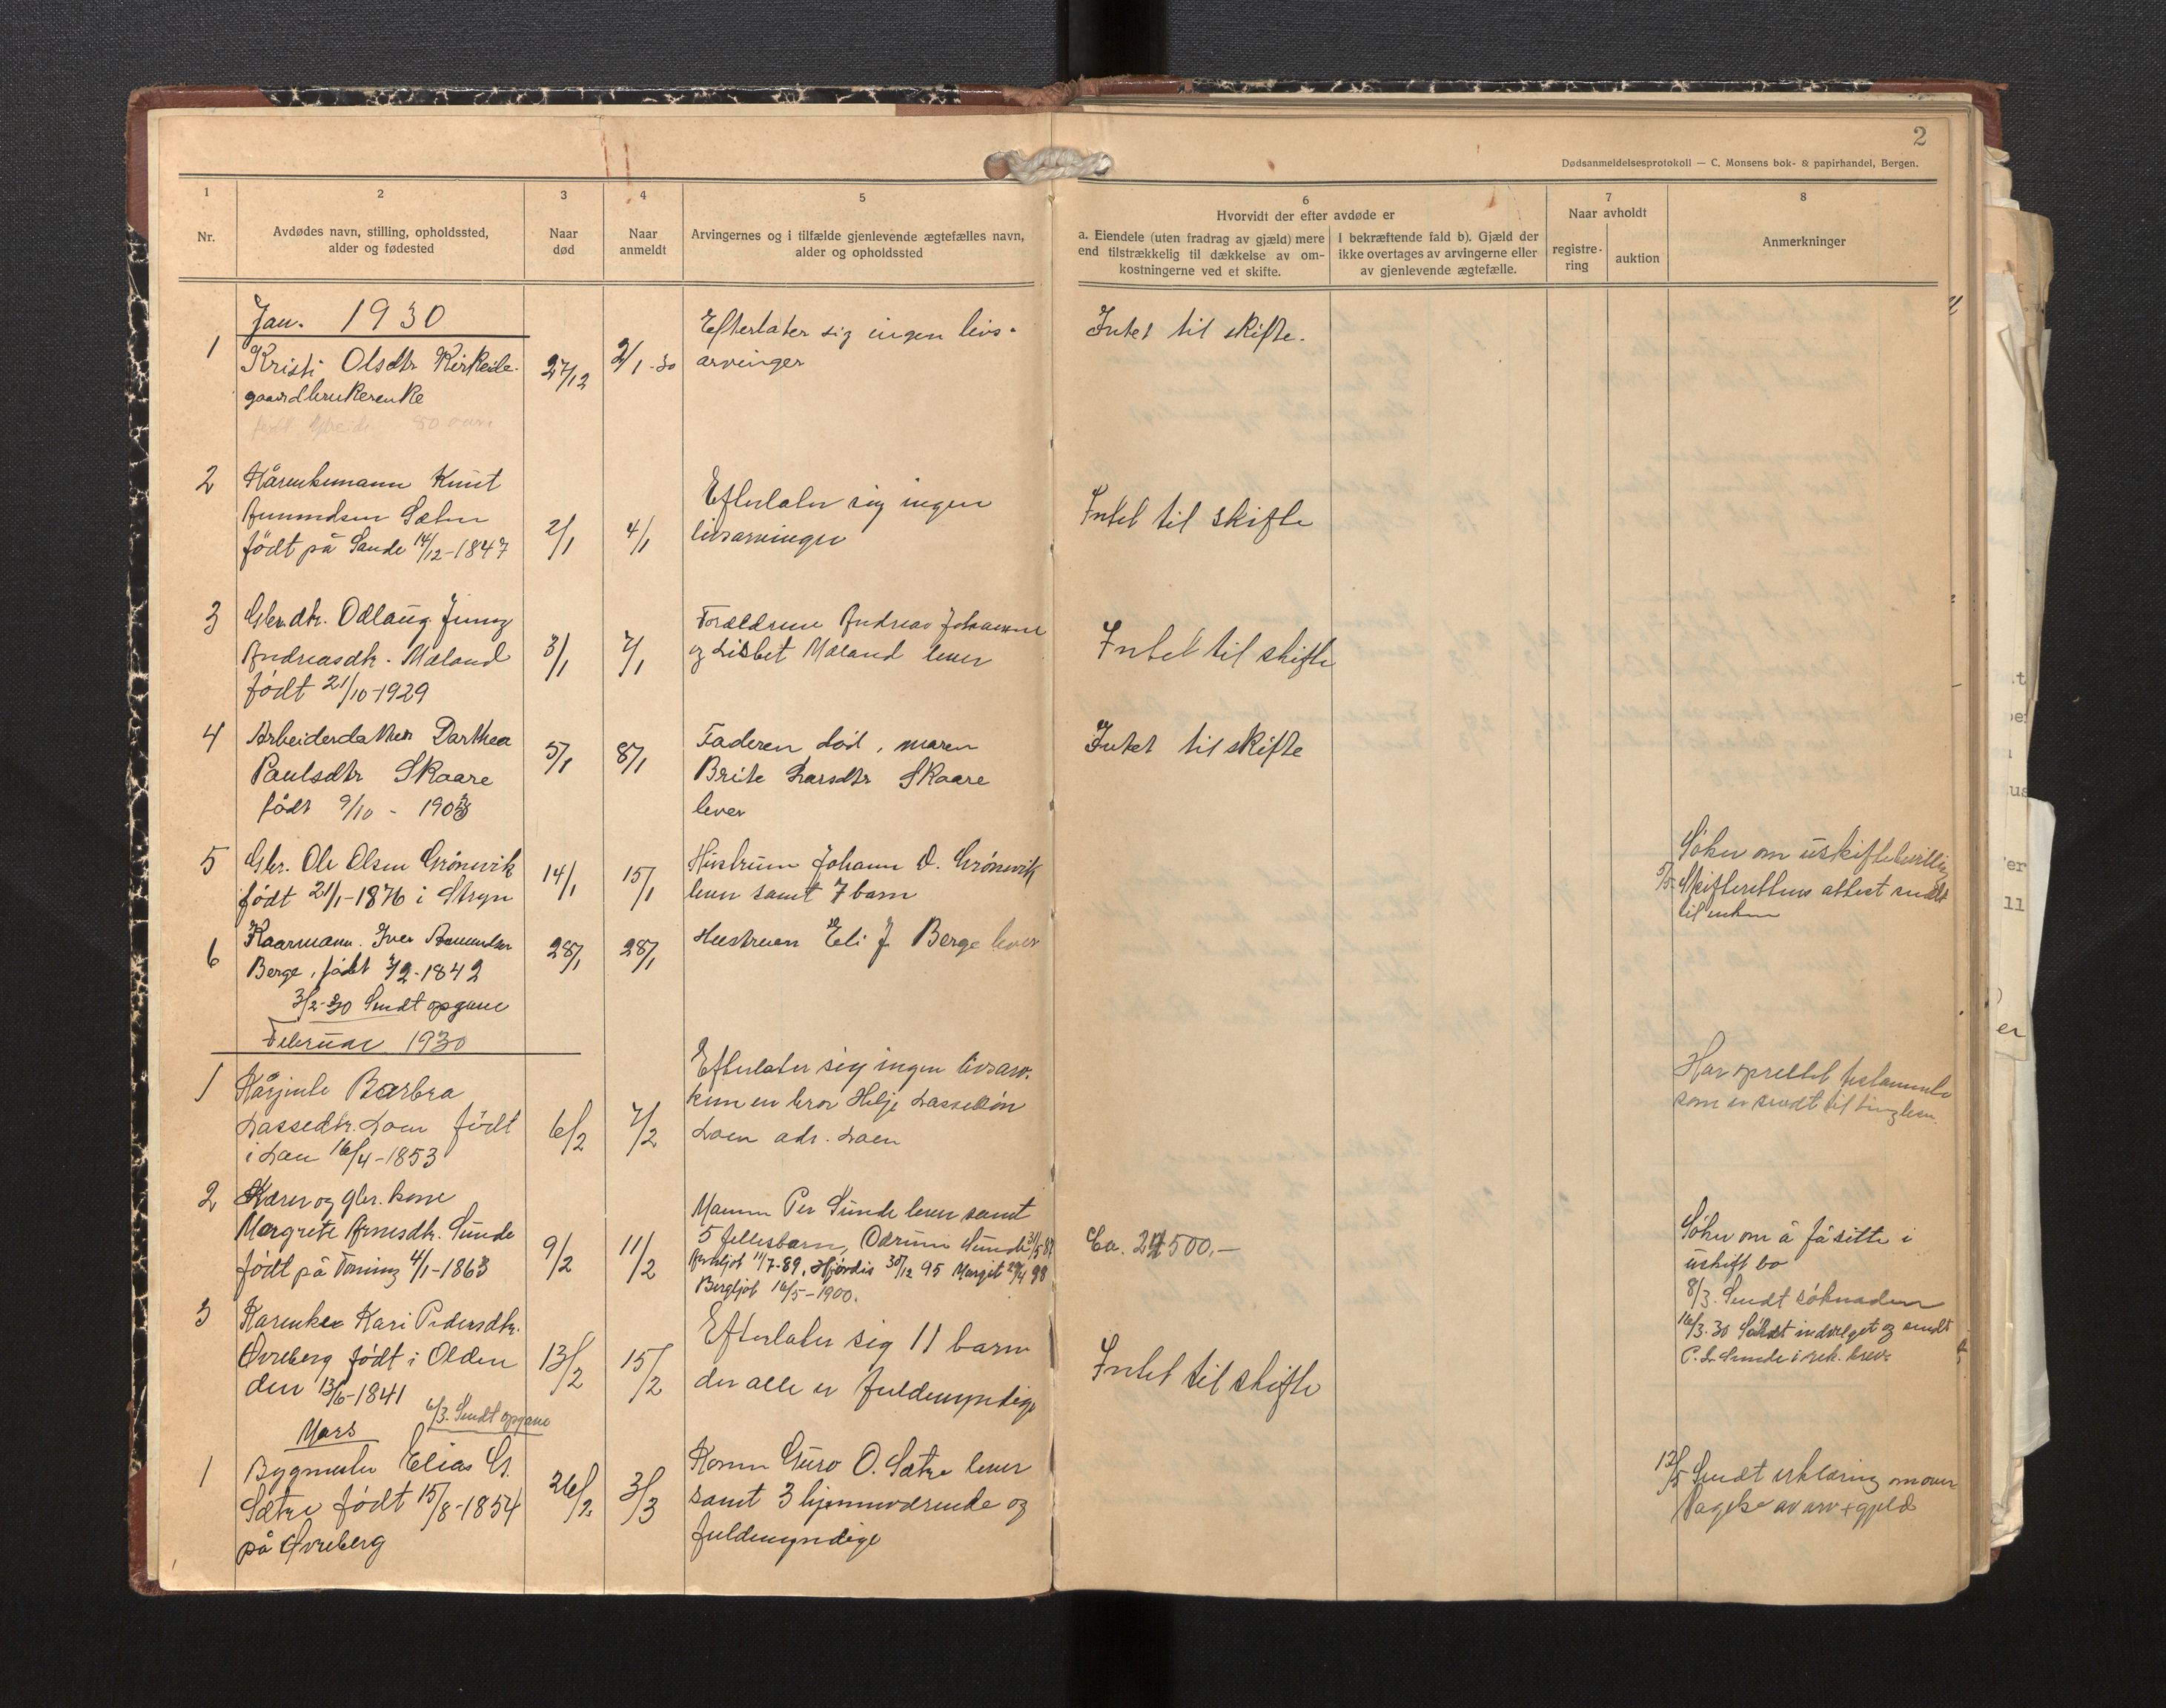 2
Dødsanmeldelsesprotokoll — C. Monsens bok- & papirhandel, Bergen.
1
Nr.
2
Avdødes navn, stilling, opholdssted,
alder og fødested
3
Naar
død
4
Naar
anmeldt
5
Arvingernes og i tilfælde gjenlevende ægtefælles navn,
alder og opholdssted
6
Hvorvidt der efter avdøde er
a. Eiendele (uten fradrag av gjæld) mere
end tilstrækkelig til dækkelse av om-
kostningerne ved et skifte.
I bekræftende fald b). Gjæld der
ikke overtages av arvingerne eller
av gjenlevende ægtefælle.
7
Naar avholdt
registre-
ring
auktion
8
Anmerkninger
Jan. 1930
1
Kristi Olsdtr Kirkeide
gaardbrukerenke
født 80 aar
27/12
2/1-30
Efterlater sig ingen livs-
arvinger
Intet til skifte.
2
Kårenkemann Knut
Sæten
født på Sande 14/12-1847
2/1
4/1
Efterlater sig ingen
livsarvinger
Intet til skifte
3
Gbr.dtr. Odlaug Jenny
Andreasdtr. Mæland
født 21/10-1929
3/1
7/1
Forældrene Andreas Johannes
og Lisbet Mæland lever
Intet til skifte
4
Arbeiderdatter Darthea
Paulsdtr Skaare
født 9/10 - 1903
5/1
8/1
Faderen død, moren
Brite Larsdtr Skaare
lever
Intet til skifte
5
Gbr. Ole Olsen Grönvik
födt 21/1-1876 i Stryn
14/1
15/1
Hustruen Johanne O. Grönvik
lever samt 7 barn
Søker om uskiftebevilling
5/5 Skifterettens attest sendt
til enken
6
Kaarmann. Iver Rasmusen
Berge, født 3/2-1842
28/1
28/1
Hustruen Eli J. Berge lever
3/2-30 Sendt opgave
Februar 1930
1
Kårjente Barbra
Lassedtr. Loen födt
i Loen 16/4-1853
6/2
7/2
Efterlater sig ingen livsarv.
kun en bror Helje Lassesön
Loen adr. Loen
Har oprettet testamente
som er sendt til tinglesn.
2
Kårer og gbr. kone
Margrete Arnesdtr. Sunde
født på Toning 4/1-1863
9/2
11/2
Mannen Per Sunde lever samt
5 fellesbarn, Sunde 31/5 87
11/7-89, Hjørdis 30/12 95 Margit 29/4 98
Bergljot 16/5-1900.
Ca. 24500,-
Søker om å få sitte i
uskift bo
8/3. Sendt søknaden
16/3.30 Søkt innvilget og sendt
P. L. Sunde i rek. brev
3
Kårenke Kari Pedersdtr.
Øvreberg født i Olden
den 13/6-1841
13/2
15/2
Efterlater sig 11 barn
der alle er fuldmyndige
Intet til skifte
6/3. Sendt opgave
Mars
1
Bygmester Elias G.
Sætre født 15/8-1854
på Øvreberg
26/2
3/3
Konen Guro O. Sætre lever
samt 3 hjemmeværende og
fuldmyndige
12/5 Sendt erklæring om over
tagelse av arv + gjeld